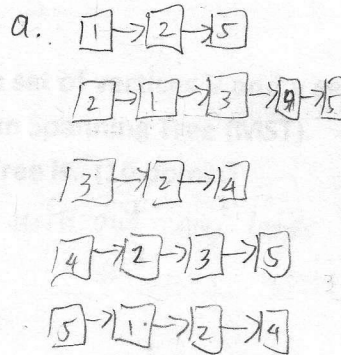 a. 1 → 2 → 5
2 → 1 → 3 → 4 → 5
3 → 2 → 4
4 → 2 → 3 → 5
5 → 1 → 2 → 4